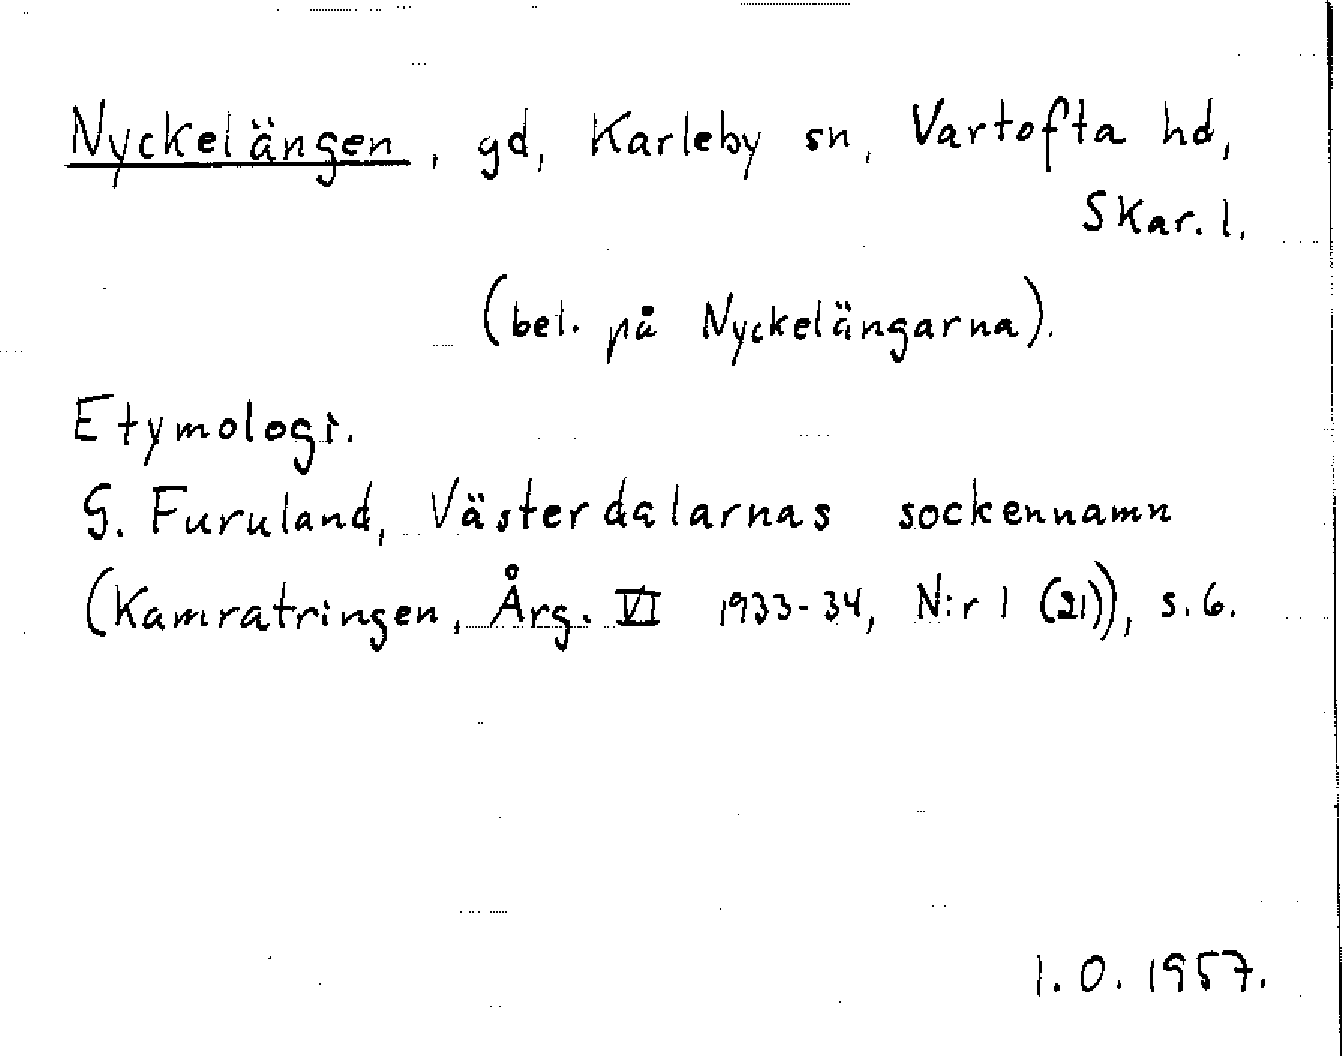 Nyckelängen, gd, Karleby sn, Vartofta hd,
Skar. l.
(bel. på Nyckelängarna).
Etymologi.
G. Furuland, Västerdalarnas sockennamn
(Kamratringen, Årg. VI 1933-34, N:r 1 (21)), s. 6.
I. O. 1957.